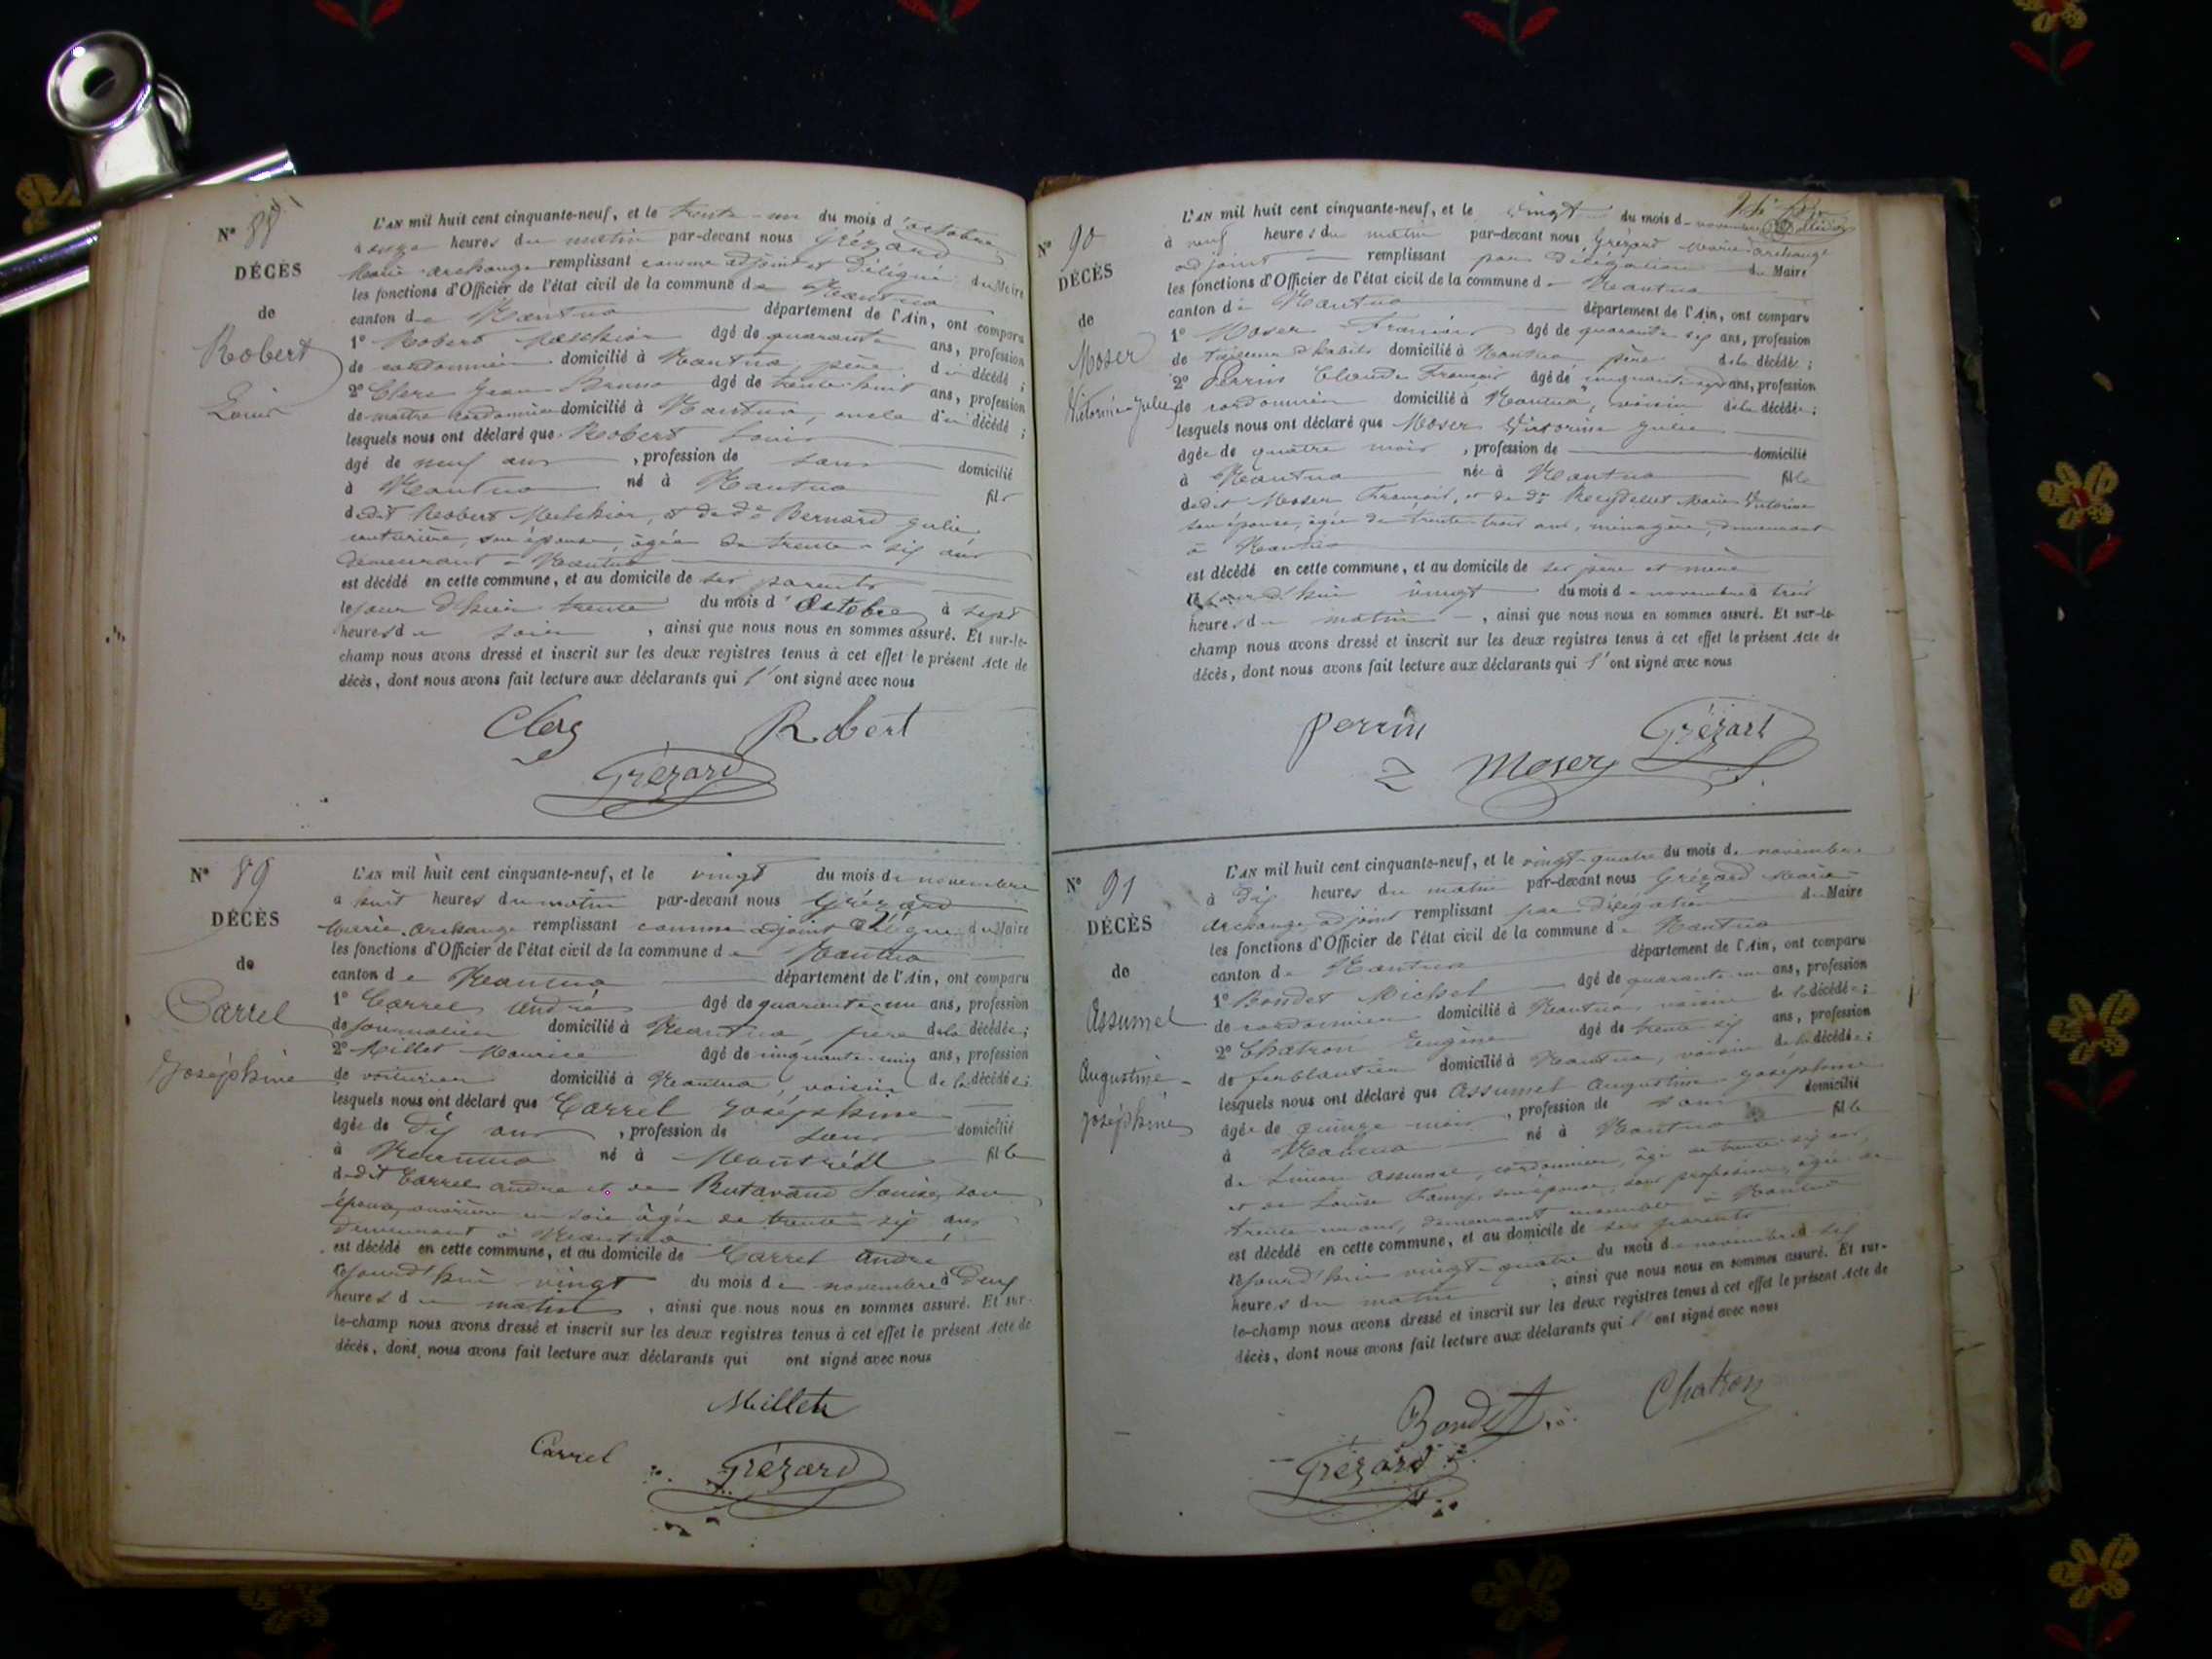 N° 88
DÉCÈS
de
Robert
Louis
L'AN mil huit cent cinquante-neuf, et le trente-un du mois d'octobre
à onze heures du matin par-devant nous Grézard
Marie archange remplissant comme adjoint et Délégué du Maire
les fonctions d'Officier de l'état civil de la commune de Nantua
canton de Nantua département de l'Ain, ont comparu
1° Robert Melchior âgé de quarante ans, profession
de cordonnier domicilié à Nantua, père du décédé ;
2° Clerc Jean Bruno âgé de trente-huit ans, profession
de maître cordonnier domicilié à Nantua, oncle du décédé ;
lesquels nous ont déclaré que Robert Louis
âgé de neuf ans , profession de sans domicilié
à Nantua né à Nantua fils
dudit Robert Melchior, et de de Bernard Julie
couturière, son épouse, âgée de trente-six ans
demeurant à Nantua
est décédé en cette commune, et au domicile de ses parents
le jour d'hier trente du mois d'Octobre à sept
heures du soir , ainsi que nous nous en sommes assuré. Et sur-le-
champ nous avons dressé et inscrit sur les deux registres tenus à cet effet le présent Acte de
décès, dont nous avons fait lecture aux déclarants qui l'ont signé avec nous
Clerc Robert
Grézard
N° 89
DÉCÈS
de
Carrel
Joséphine
L'AN mil huit cent cinquante-neuf, et le vingt du mois de novembre
à huit heures du matin par-devant nous Grézard
Marie archange remplissant comme adjoint Délégué du Maire
les fonctions d'Officier de l'état civil de la commune de Nantua
canton de Nantua département de l'Ain, ont comparu
1° Carrel André âgé de quarante-un ans, profession
de journalier domicilié à Nantua, père de la décédée ;
2° Millet Maurice âgé de cinquante-cinq ans, profession
de voiturier domicilié à Nantua, voisin de la décédée ;
lesquels nous ont déclaré que Carrel Joséphine
âgée de dix ans , profession de sans domicilié
à Nantua né à Montréal fille
dudit Carrel andré et de Butavand Louise, son
épouse, ouvrière en soie, âgée de trente-six ans
demeurant à Nantua
est décédé en cette commune, et au domicile de Carrel andré
cejourd'hui vingt du mois de novembre à Deux
heures du matin , ainsi que nous nous en sommes assuré. Et sur-
le-champ nous avons dressé et inscrit sur les deux registres tenus à cet effet le présent Acte de
décès, dont nous avons fait lecture aux déclarants qui ont signé avec nous
Millet
Carrel Grézard
N° 90
DÉCÈS
de
Moser
Victorine Julie
L'AN mil huit cent cinquante-neuf, et le vingt du mois de novembre
à neuf heures du matin par-devant nous Grézard Marie archange
adjoint remplissant par délégation du Maire
les fonctions d'Officier de l'état civil de la commune de Nantua
canton de Nantua département de l'Ain, ont comparu
1° Moser François âgé de quarante six ans, profession
de tailleur d'habits domicilié à Nantua père de la décédée ;
2° Perrin Claude François âgé de cinquante-sept ans, profession
de cordonnier domicilié à Nantua, voisin de la décédée ;
lesquels nous ont déclaré que Moser Victorine Julie
âgée de quatre mois , profession de domicilié
à Nantua née à Nantua fille
dudit Moser François, et de de Marie Victorine
son épouse, âgée de trente-trois ans, ménagère, demeurant
à Nantua
est décédé en cette commune, et au domicile de ses père et mère
cejourd'hui vingt du mois de novembre à trois
heures du matin , ainsi que nous nous en sommes assuré. Et sur-le-
champ nous avons dressé et inscrit sur les deux registres tenus à cet effet le présent Acte de
décès, dont nous avons fait lecture aux déclarants qui l'ont signé avec nous
Perrin Grézard
Moser
N° 91
DÉCÈS
de
Assumel
Augustine
Joséphine
L'AN mil huit cent cinquante-neuf, et le vingt-quatre du mois de novembre
à dix heures du matin par-devant nous Grézard Marie
Archange, adjoint remplissant par délégation du Maire
les fonctions d'Officier de l'état civil de la commune de Nantua
canton de Nantua département de l'Ain, ont comparu
1° Bondet Michel âgé de quarante-un ans, profession
de cordonnier domicilié à Nantua, voisin de la décédée ;
2° Chatron Eugène âgé de trente six ans, profession
de ferblantier domicilié à Nantua, voisin de la décédée ;
lesquels nous ont déclaré que Assumel Augustine Joséphine
âgée de quinze mois , profession de sans domicilié
à Nantua né à Nantua fille
de Simon Assumel, cordonnier, âgé de trente-six ans,
et de Louise Famy, son épouse, sans profession, âgée de
trente un ans, demeurant ensemble à Nantua
est décédé en cette commune, et au domicile de ses parents
cejourd'hui vingt-quatre du mois de novembre à six
heures du matin , ainsi que nous nous en sommes assuré. Et sur-
le-champ nous avons dressé et inscrit sur les deux registres tenus à cet effet le présent Acte de
décès, dont nous avons fait lecture aux déclarants qui l'ont signé avec nous
Bondet Chatron
Grézard